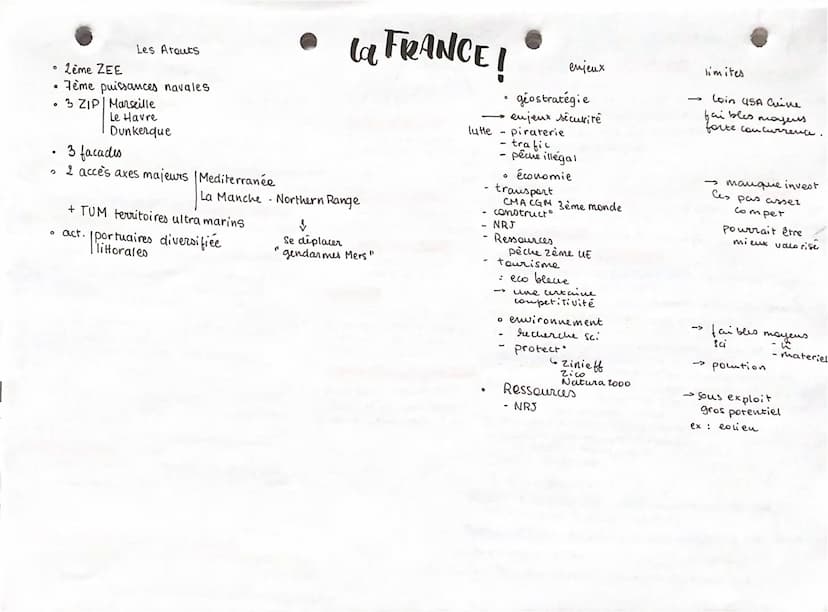 la FRANCE !
Les Atouts
• 2ème ZEE
• 7ème puissances navales
• 3 ZIP Marseille
Le Havre
Dunkerque
• 3 facades
• 2 accès axes majeurs Mediterranée
La Manche - Northern Range
+ TUM territoires ultra marins
• act. portuaires diversifiée
littorales
↓
Se déplacer
"gendarmes Mers"
enjeux
• géostratégie
→ enjeux sécurité
lutte - piraterie
- trafic
- pêche illégal
• économie
- transport
CMA CGM 3ème monde
- construct°
- NRJ
- Ressources
pêche 2ème UE
- tourisme
: eco bleue
→ une certaine
competitivité
• environnement
- recherche sci
- protect°
↳ Znieff
Zico
Natura 2000
• Ressources
- NRJ
limites
→ loin USA Chine
faibles moyens
forte concurrence.
→ manque invest
pas assez
compet
pourrait être
mieux valorisé
→ faibles moyens
sci
- materiel
→ polution
→ sous exploit
gros potentiel
ex : eolien